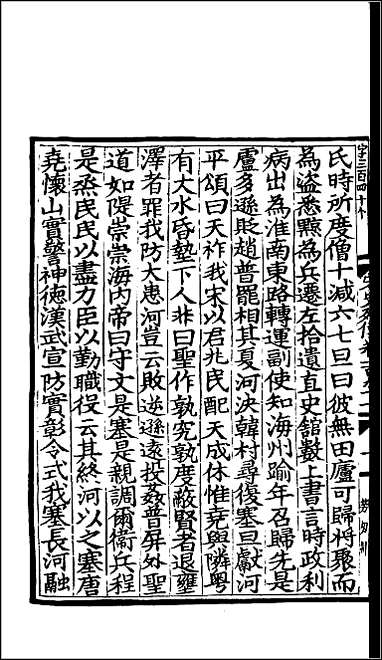 氏時所度僧十減六七旦曰彼無田廬可歸將聚而
為盜悉黥為兵遷左拾遺直史館數上書言時政利
病出為淮南東路轉運副使知海州踰年召歸先是
盧多遜貶趙普罷相其夏河決韓村尋復塞旦獻河
平頌曰天祚我宋以君兆民配天成休惟堯與隣粵
有大水昏墊下人非曰聖作孰究孰度蔽賢者退壅
澤者罪我防大患河豈云敗逆遜遠投姦普屏外聖
道如隄崇崇海內帝曰守文是塞是親調爾衞兵程
是烝民民以盡力臣以勤職役云其終河以之塞唐
堯懷山實警神徳漢武宣防實彰令式我塞長河融
字三百四十